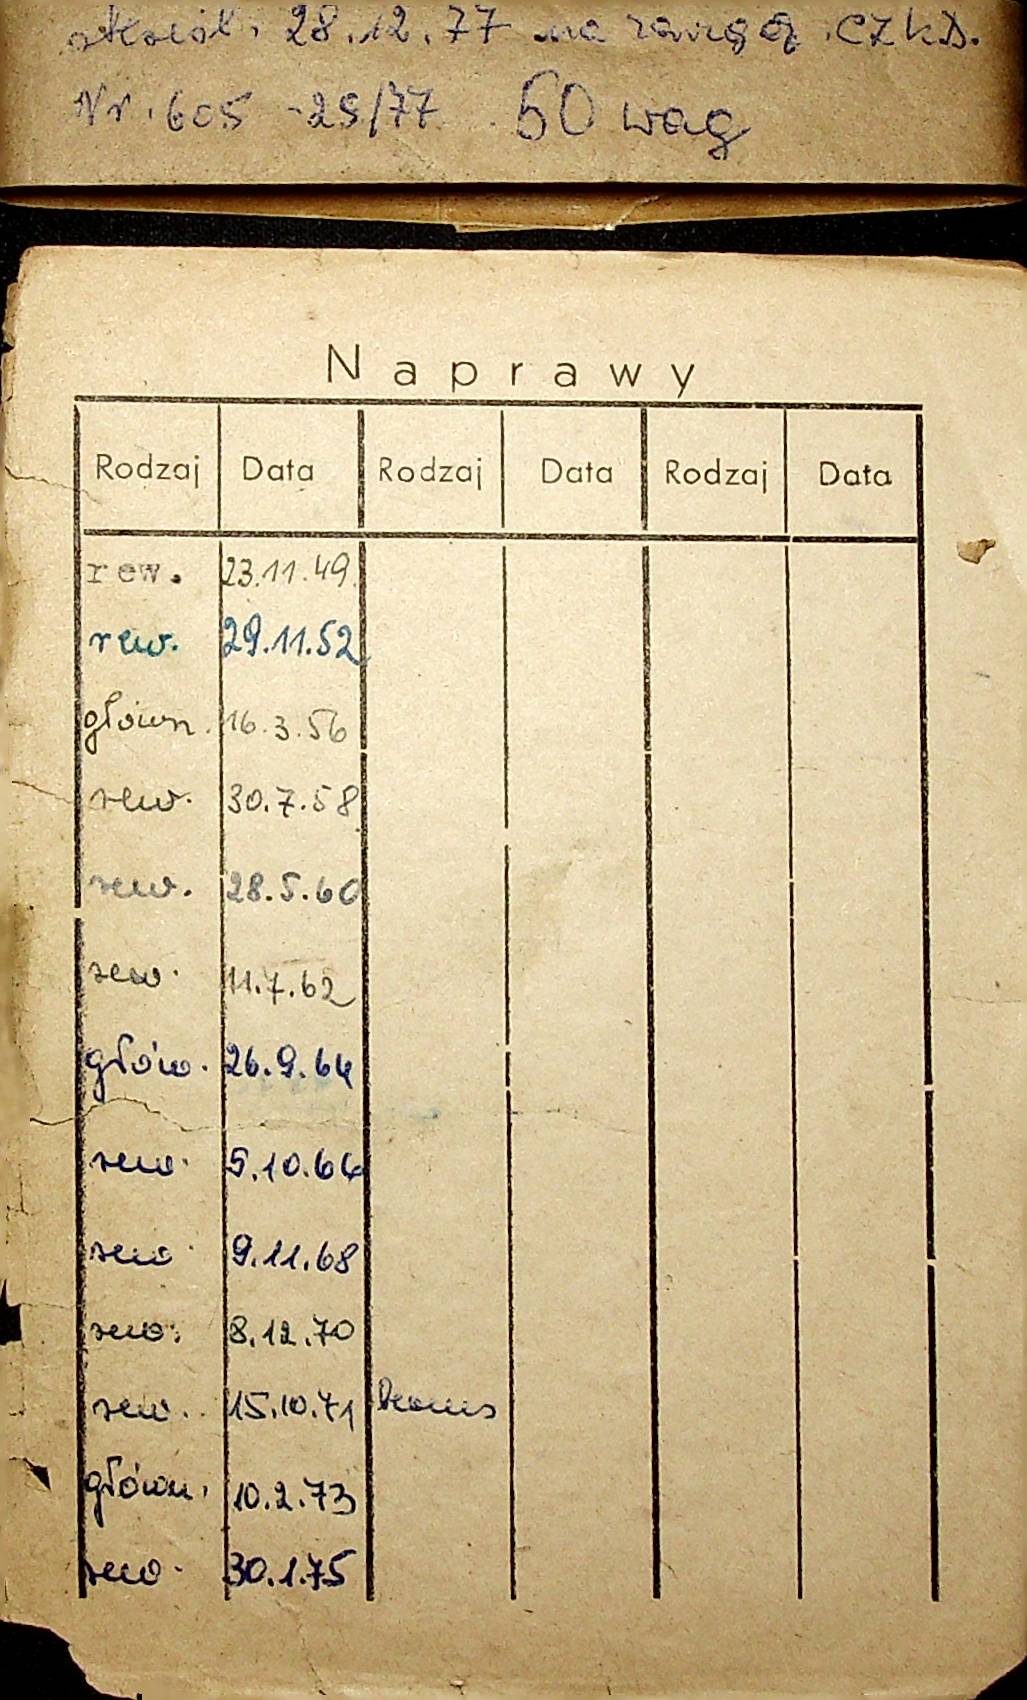 skreśl. 28.12.77 na zarząd. CZKD.
Nr. 605 -29/77 50 wag
Naprawy
Rodzaj Data Rodzaj Data Rodzaj Data
rew. 23.11.49.
rew. 29.11.52
główn. 16.3.56
rew. 30.7.58
rew. 28.5.60
rew. 11.7.62
głów. 26.9.64
rew. 5.10.66
rew. 9.11.68
rew. 8.12.70
rew. 15.10.71
główn. 10.2.73
rew. 30.1.75